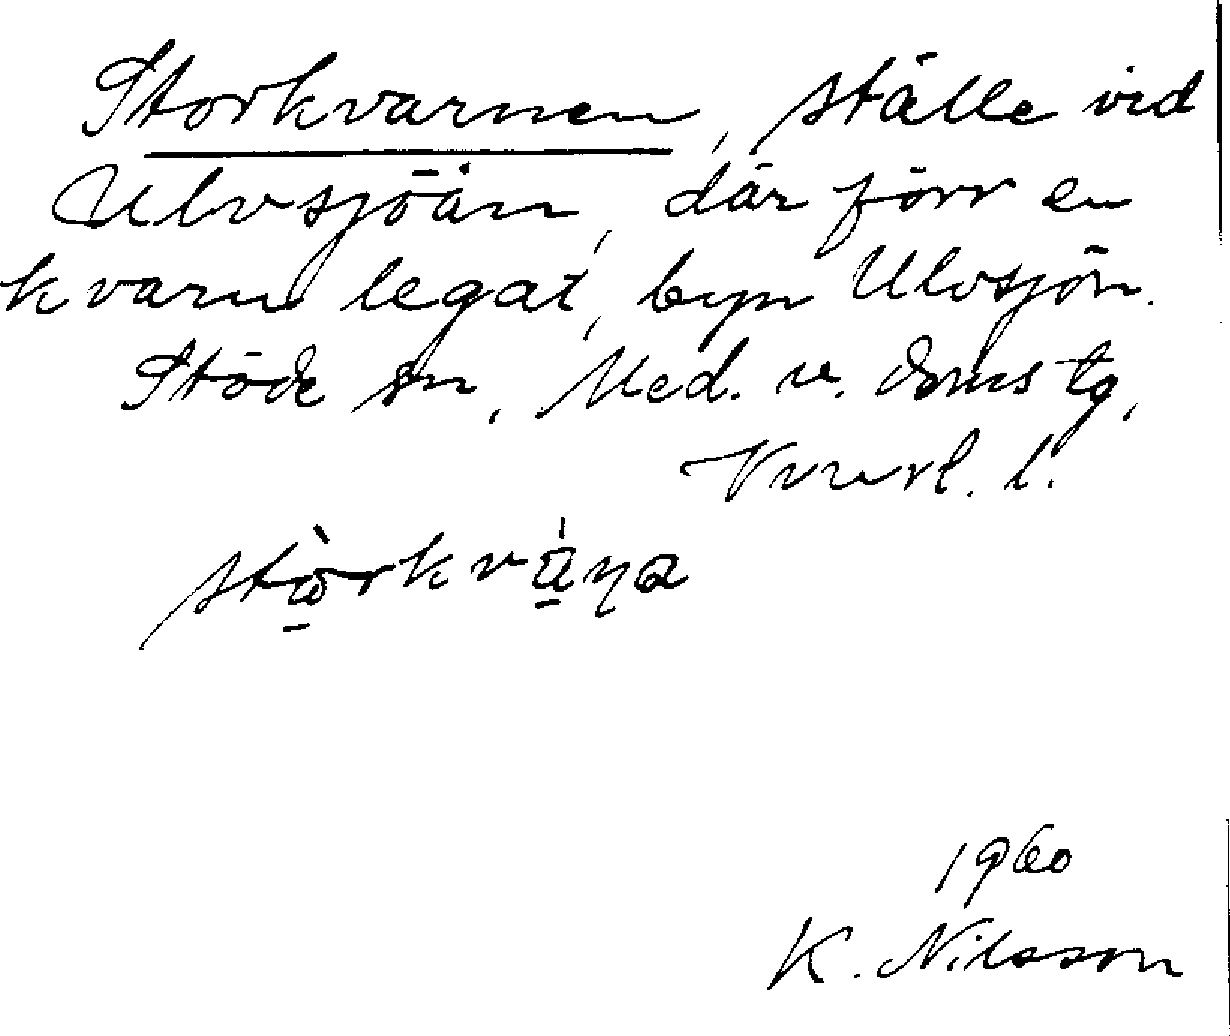 Storkvarnen, ställe vid
Ulvsjöån, där förr en
kvarn legat, byn Ulvsjön.
Stöde sn, Med. v. doms tg,
l.
1960
K. Nilsson